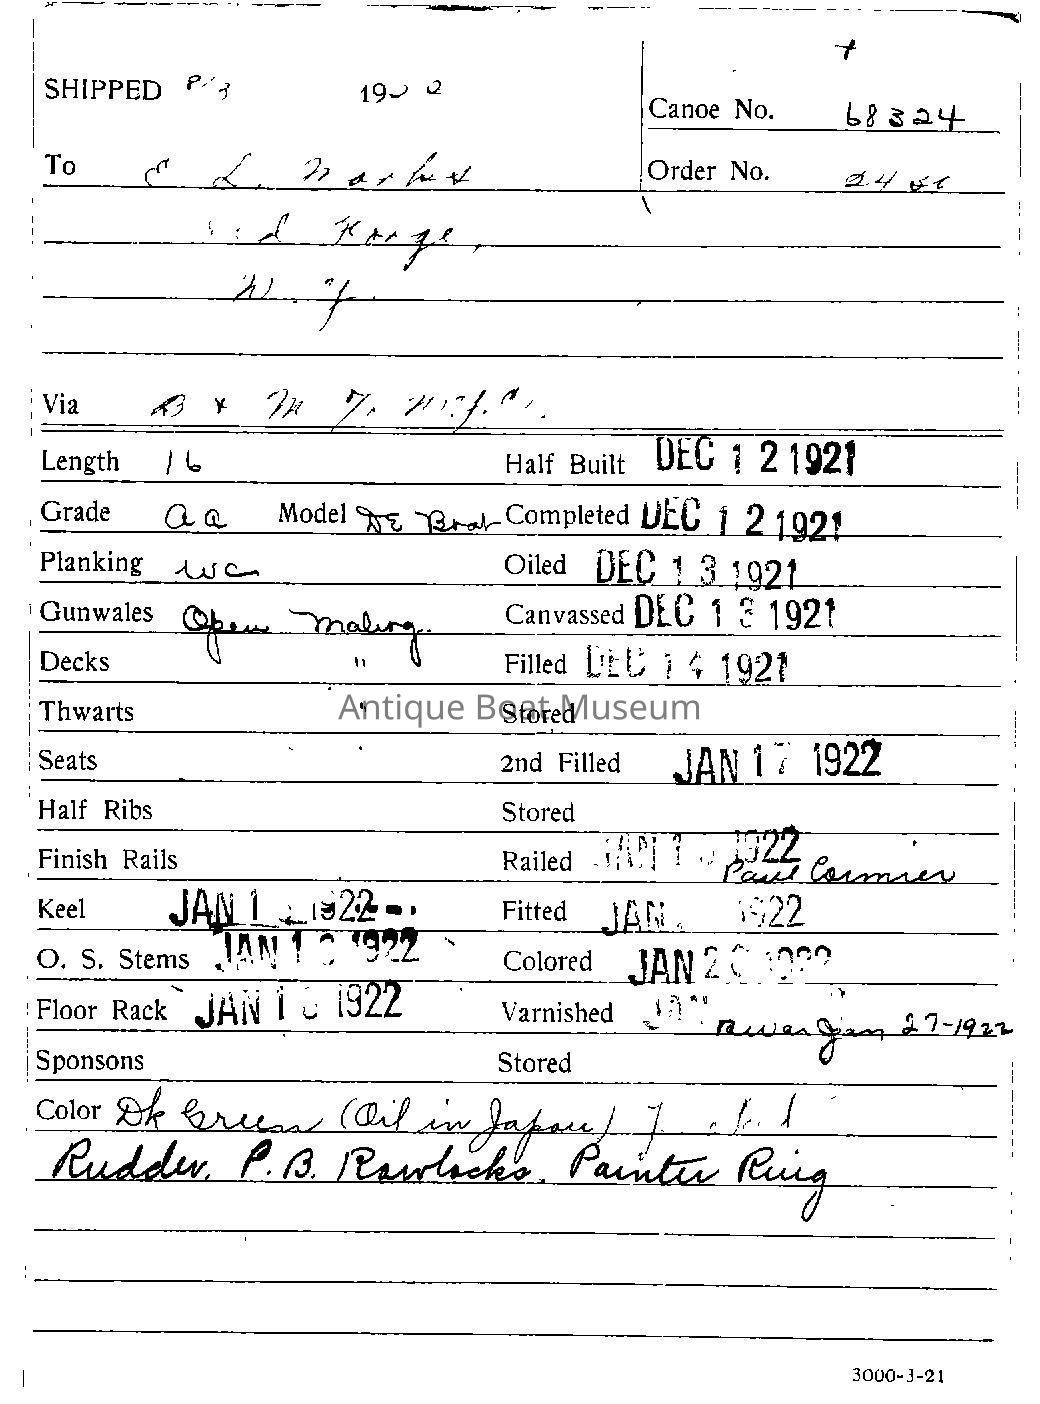 SHIPPED 1922
Canoe No. 68324
To E L.
Order No. 24
Forge,
N. Y.
Via B & M
Length 16 Half Built DEC 12 1921
Grade AA Model DE Boat Completed DEC 12 1921
Planking WC Oiled DEC 13 1921
Gunwales Open Mahog. Canvassed DEC 13 1921
Decks " Filled DEC 14 1921
Thwarts " Stored
Antique Boat Museum
Seats " 2nd Filled JAN 17 1922
Half Ribs Stored
Finish Rails Railed JAN 1 1922 Paul Cormier
Keel JAN 1 1922 Fitted JAN 1922
O. S. Stems JAN 1 1922 Colored JAN 20 1922
Floor Rack JAN 1 1922 Varnished JAN Jan 27-1922
Sponsons Stored
Color Dk Green (Oil in Japan)
Rudder. P. B. Rowlocks. Painter Ring
3000-3-21